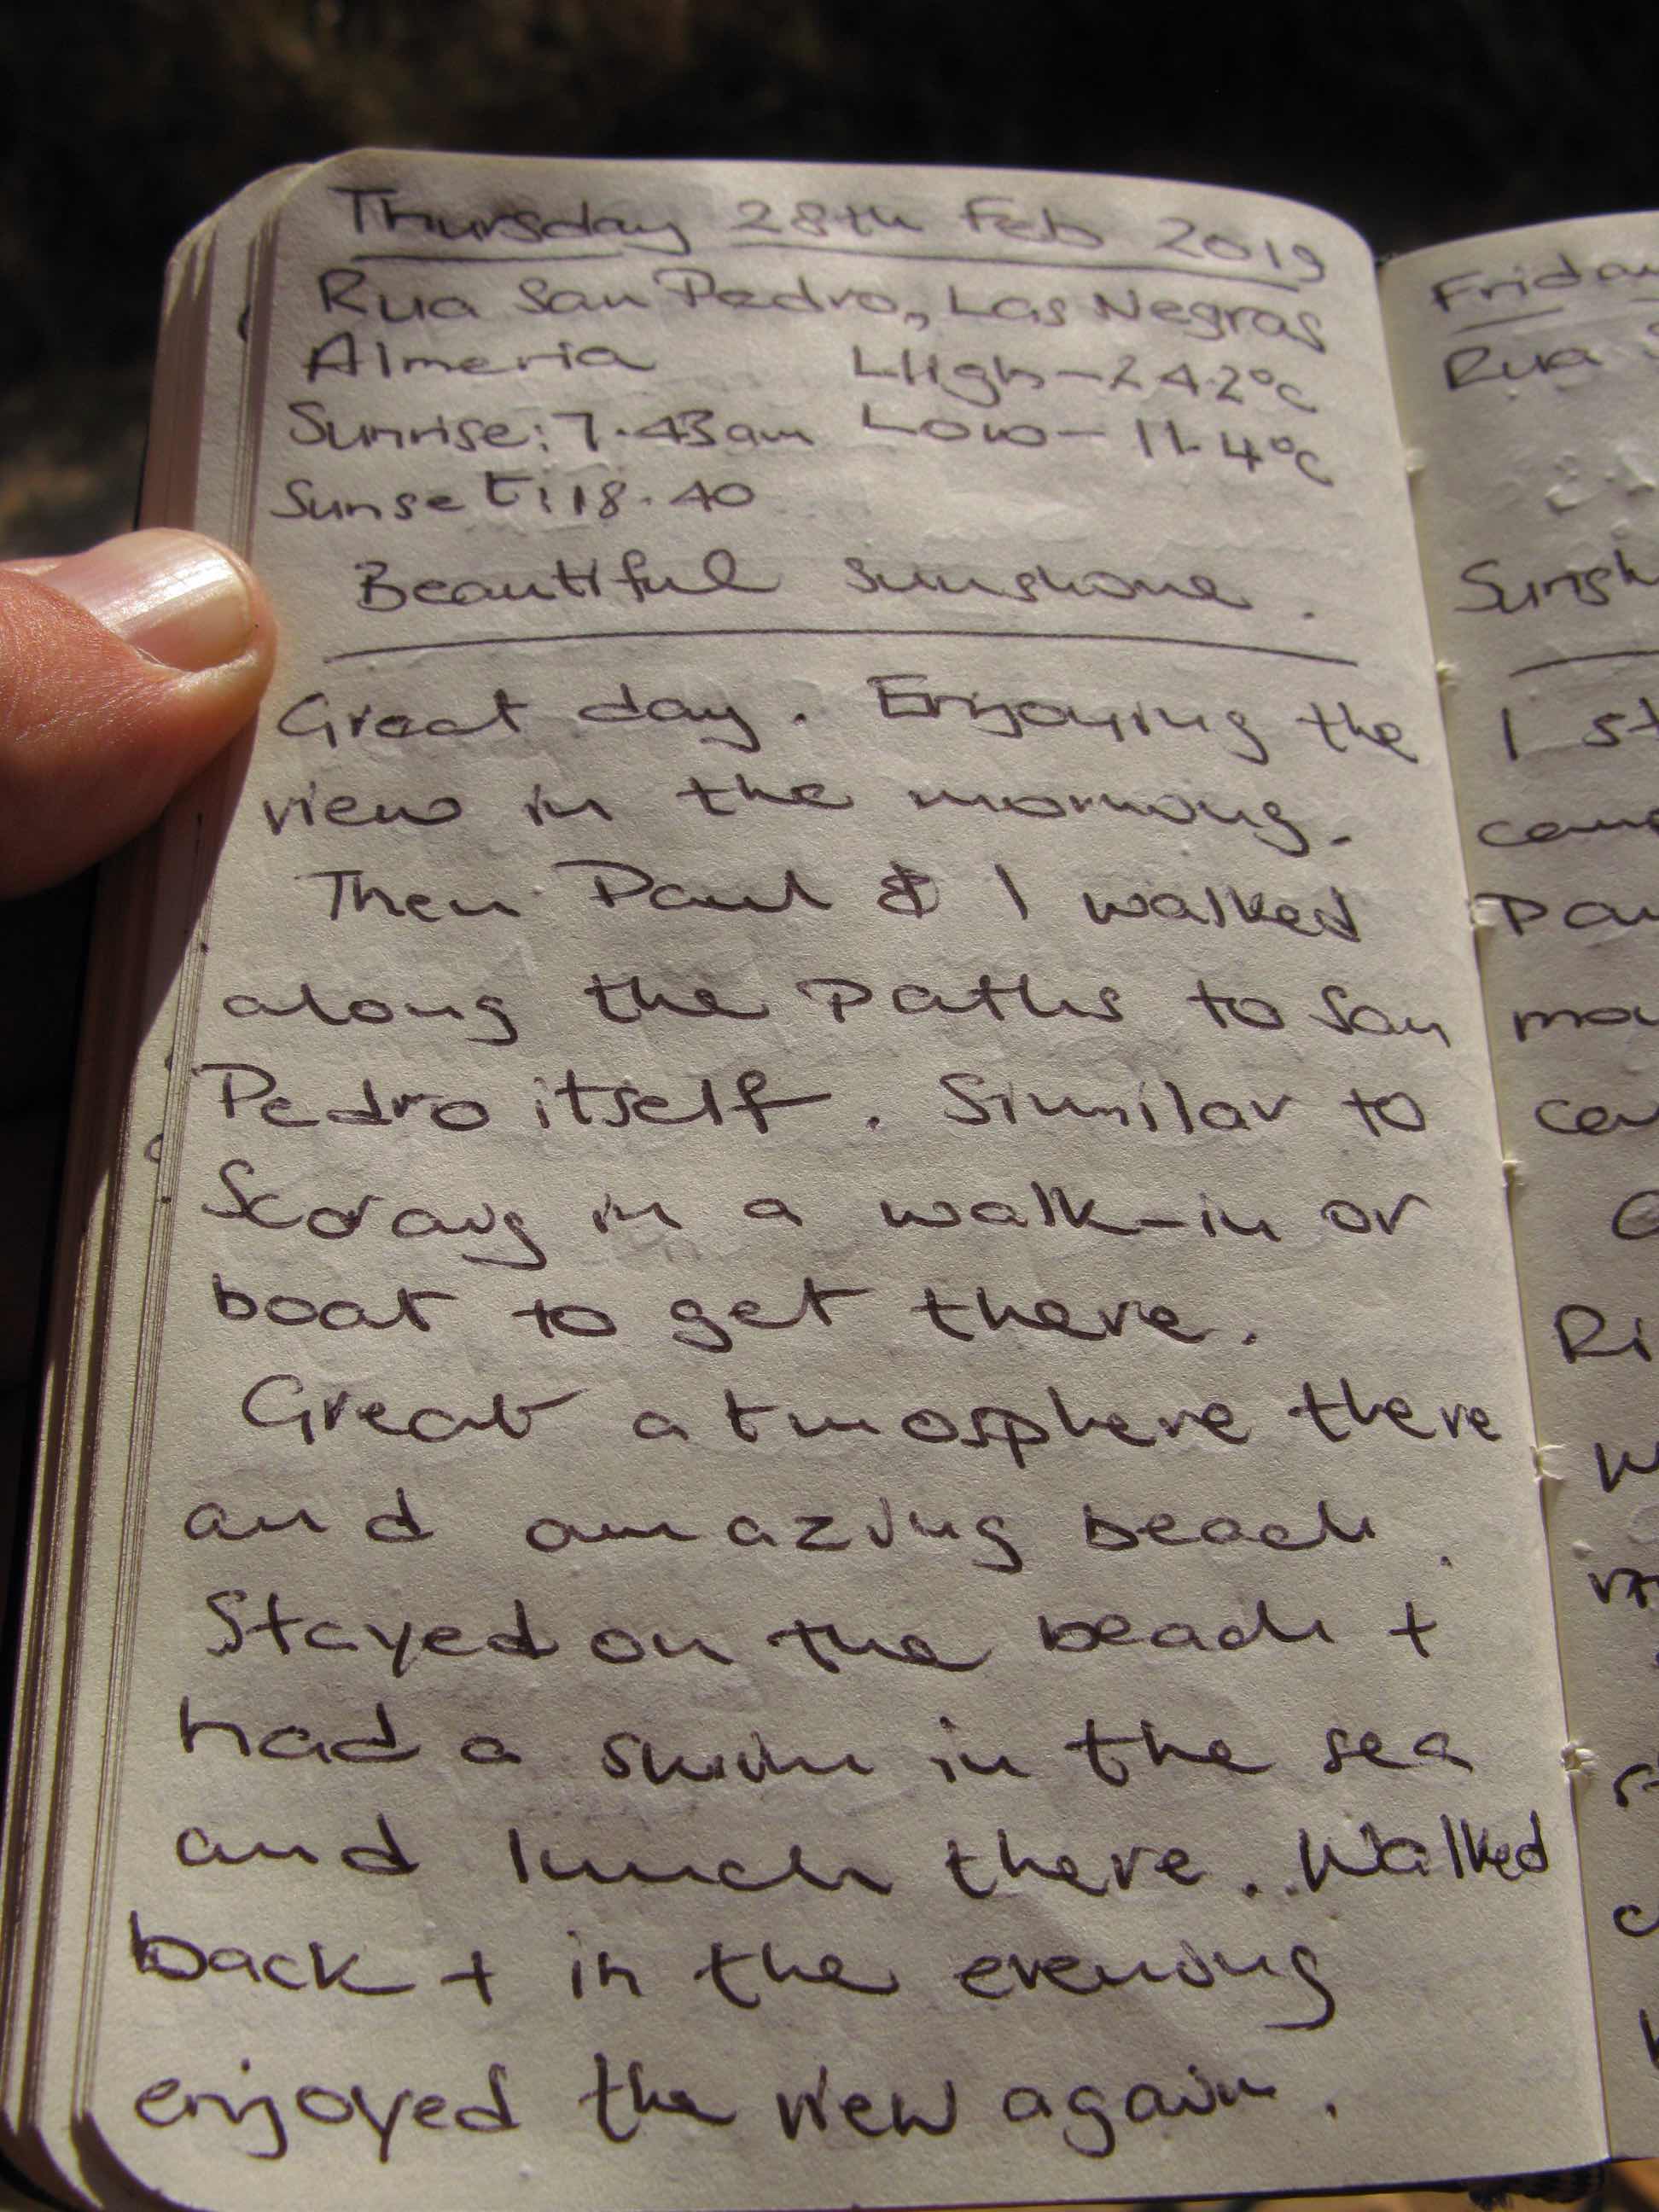 Thursday 28th Feb 2019
Rua San Pedro, Las Negras
Almeria High - 24.2°c
Sunrise: 7.43am Low - 11.4°c
Sunset: 18.40
Beautiful sunshine.
Great day. Enjoying the
view in the morning.
Then Paul & I walked
along the Paths to San
Pedro itself. Similar to
Scoraig in a walk-in or
boat to get there.
Great atmosphere there
and amazing beach.
Stayed on the beach +
had a swim in the sea
and lunch there. Walked
back + in the evening
enjoyed the view again.
Friday
Rua
I